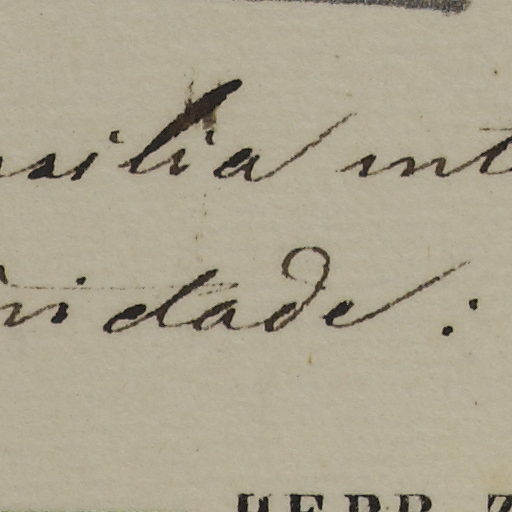 asilia int
ri dade.
HERB. Z